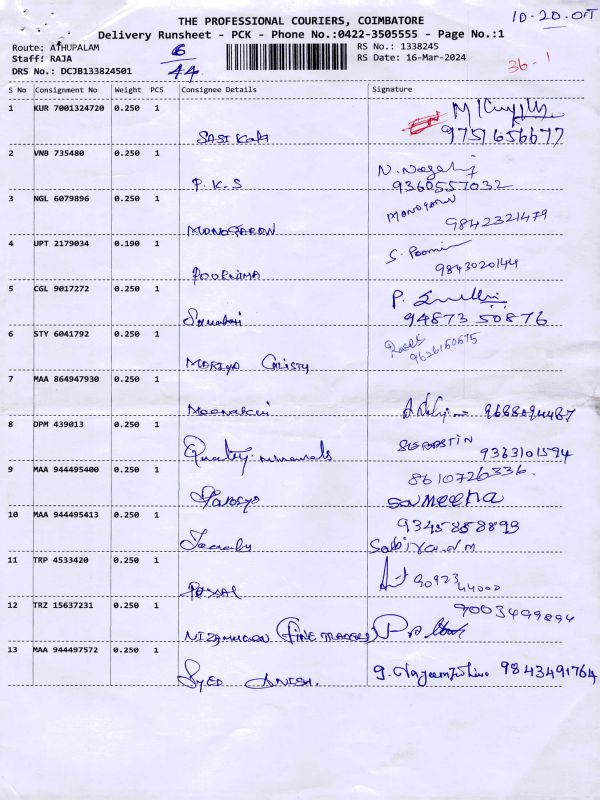 10-20.OIT
THE PROFESSIONAL COURIERS, COIMBATORE
Delivery Runsheet - PCK - Phone No.:0422-3505555 - Page No.:1
Route: ATHUPALAM 6 RS No.: 1338245
Staff: RAJA RS Date: 16-Mar-2024 36-1
DRS No.: DCJB133824501 44
S No Consignment No Weight PCS Consignee Details Signature
1 KUR 7001324720 0.250 1
SASI KALA 9751656677
2 VNB 735480 0.250 1
P.K.S 9360557032
3 NGL 6079896 0.250 1 MONOGARAN
MONOGAROW 9842321479
4 UPT 2179034 0.190 1 S. Poorni
POORNIMA 9843020144
5 CGL 9017272 0.250 1 P.
94873 50876
6 STY 6041792 0.250 1
9626150575
MARIYA CRISTY
7 MAA 864947930 0.250 1
Meenakshi 9688094487
8 DPM 439013 0.250 1
Quality 9363101594
9 MAA 944495400 0.250 1 8610726336.
sameena
10 MAA 944495413 0.250 1 9345858893
Sabiya.n.m
11 TRP 4533420 0.250 1 90923
44000
12 TRZ 15637231 0.250 1 9003499894
NIZAMUDDIN (FINE TRADERS)
13 MAA 944497572 0.250 1
SYED ANISH. 9843491764